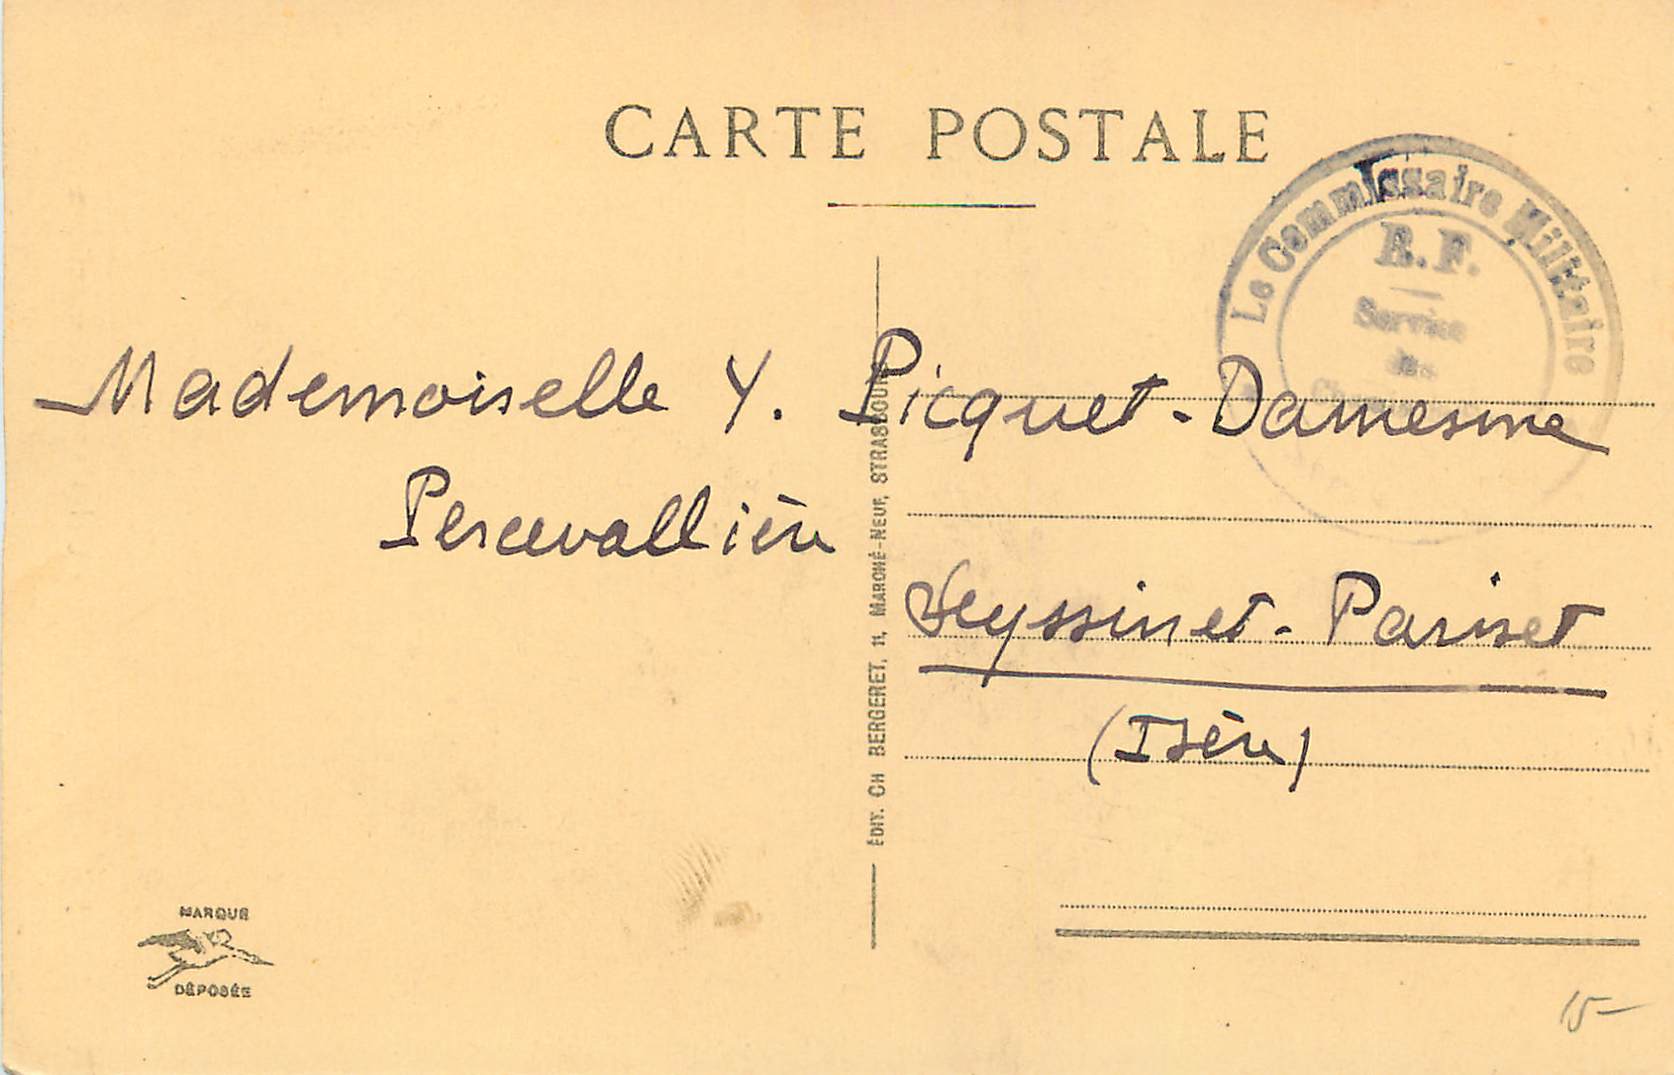 CARTE POSTALE
Le Commissaire Militaire
R.F.
Service
des
Mademoiselle Y. Picquet-Damesme
Percevallière
Seyssinet-Pariset
(Isère)
ÉDIT. CH BERGERET, 11, MARCHÉ-NEUF, STRASBOURG
MARQUE
DÉPOSÉE
15-